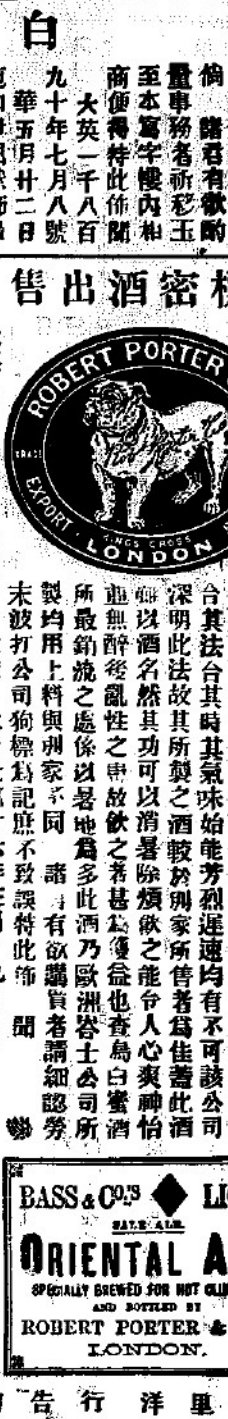 白
倘 諸君有欲酌
量事務者祈移玉
至本寫字樓內相
商便得特此佈聞
大英一千八百
九十年七月八號
華五月廿二日
售出酒密
ROBERT PORTER
TRADE
EXPORT
KINGS CROSS
LONDON
合其法合其時其氣味始能芳烈遲速均有不可該公司
深明此法故其所製之酒較於別家所售者為佳蓋此酒
雖以酒名然其功可以消暑除煩飲之能令人心爽神怡
並無醉後亂性之事故飲之者甚為獲益也查烏白蜜酒
所最銷流之處係以暑地為多此酒乃歐洲巻士公司所
製均用上料與別家不同 諸 有欲購買者請細認勞
末波打公司狗標為記庶不致誤特此佈 聞
BASS & CO.'S
PALE ALE
ORIENTAL
SPECIALLY BREWED FOR HOT
AND BOTTLED BY
ROBERT PORTER &
LONDON.
告行洋